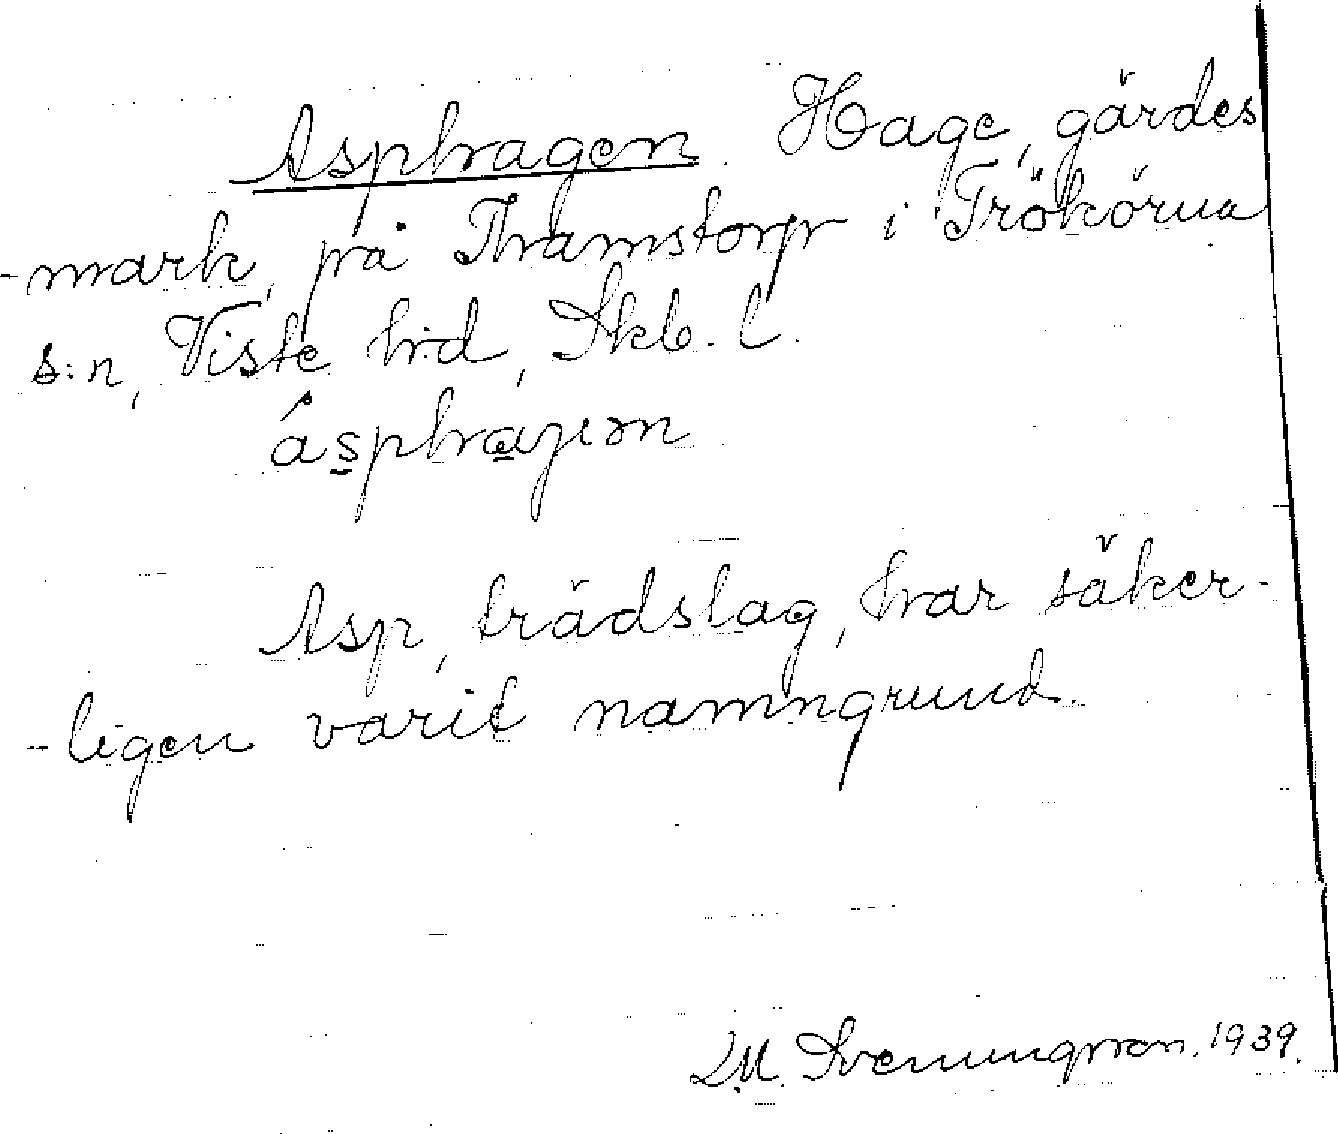 Asphagen. Hage, gärdes
-mark, på Thamstorp i Trökörna
s:n, Viste h:d, Skb. l.
ásphaჟen
Asp, trädslag, har säker-
-ligen varit namngrund.
D.M. Svenungsson. 1939.